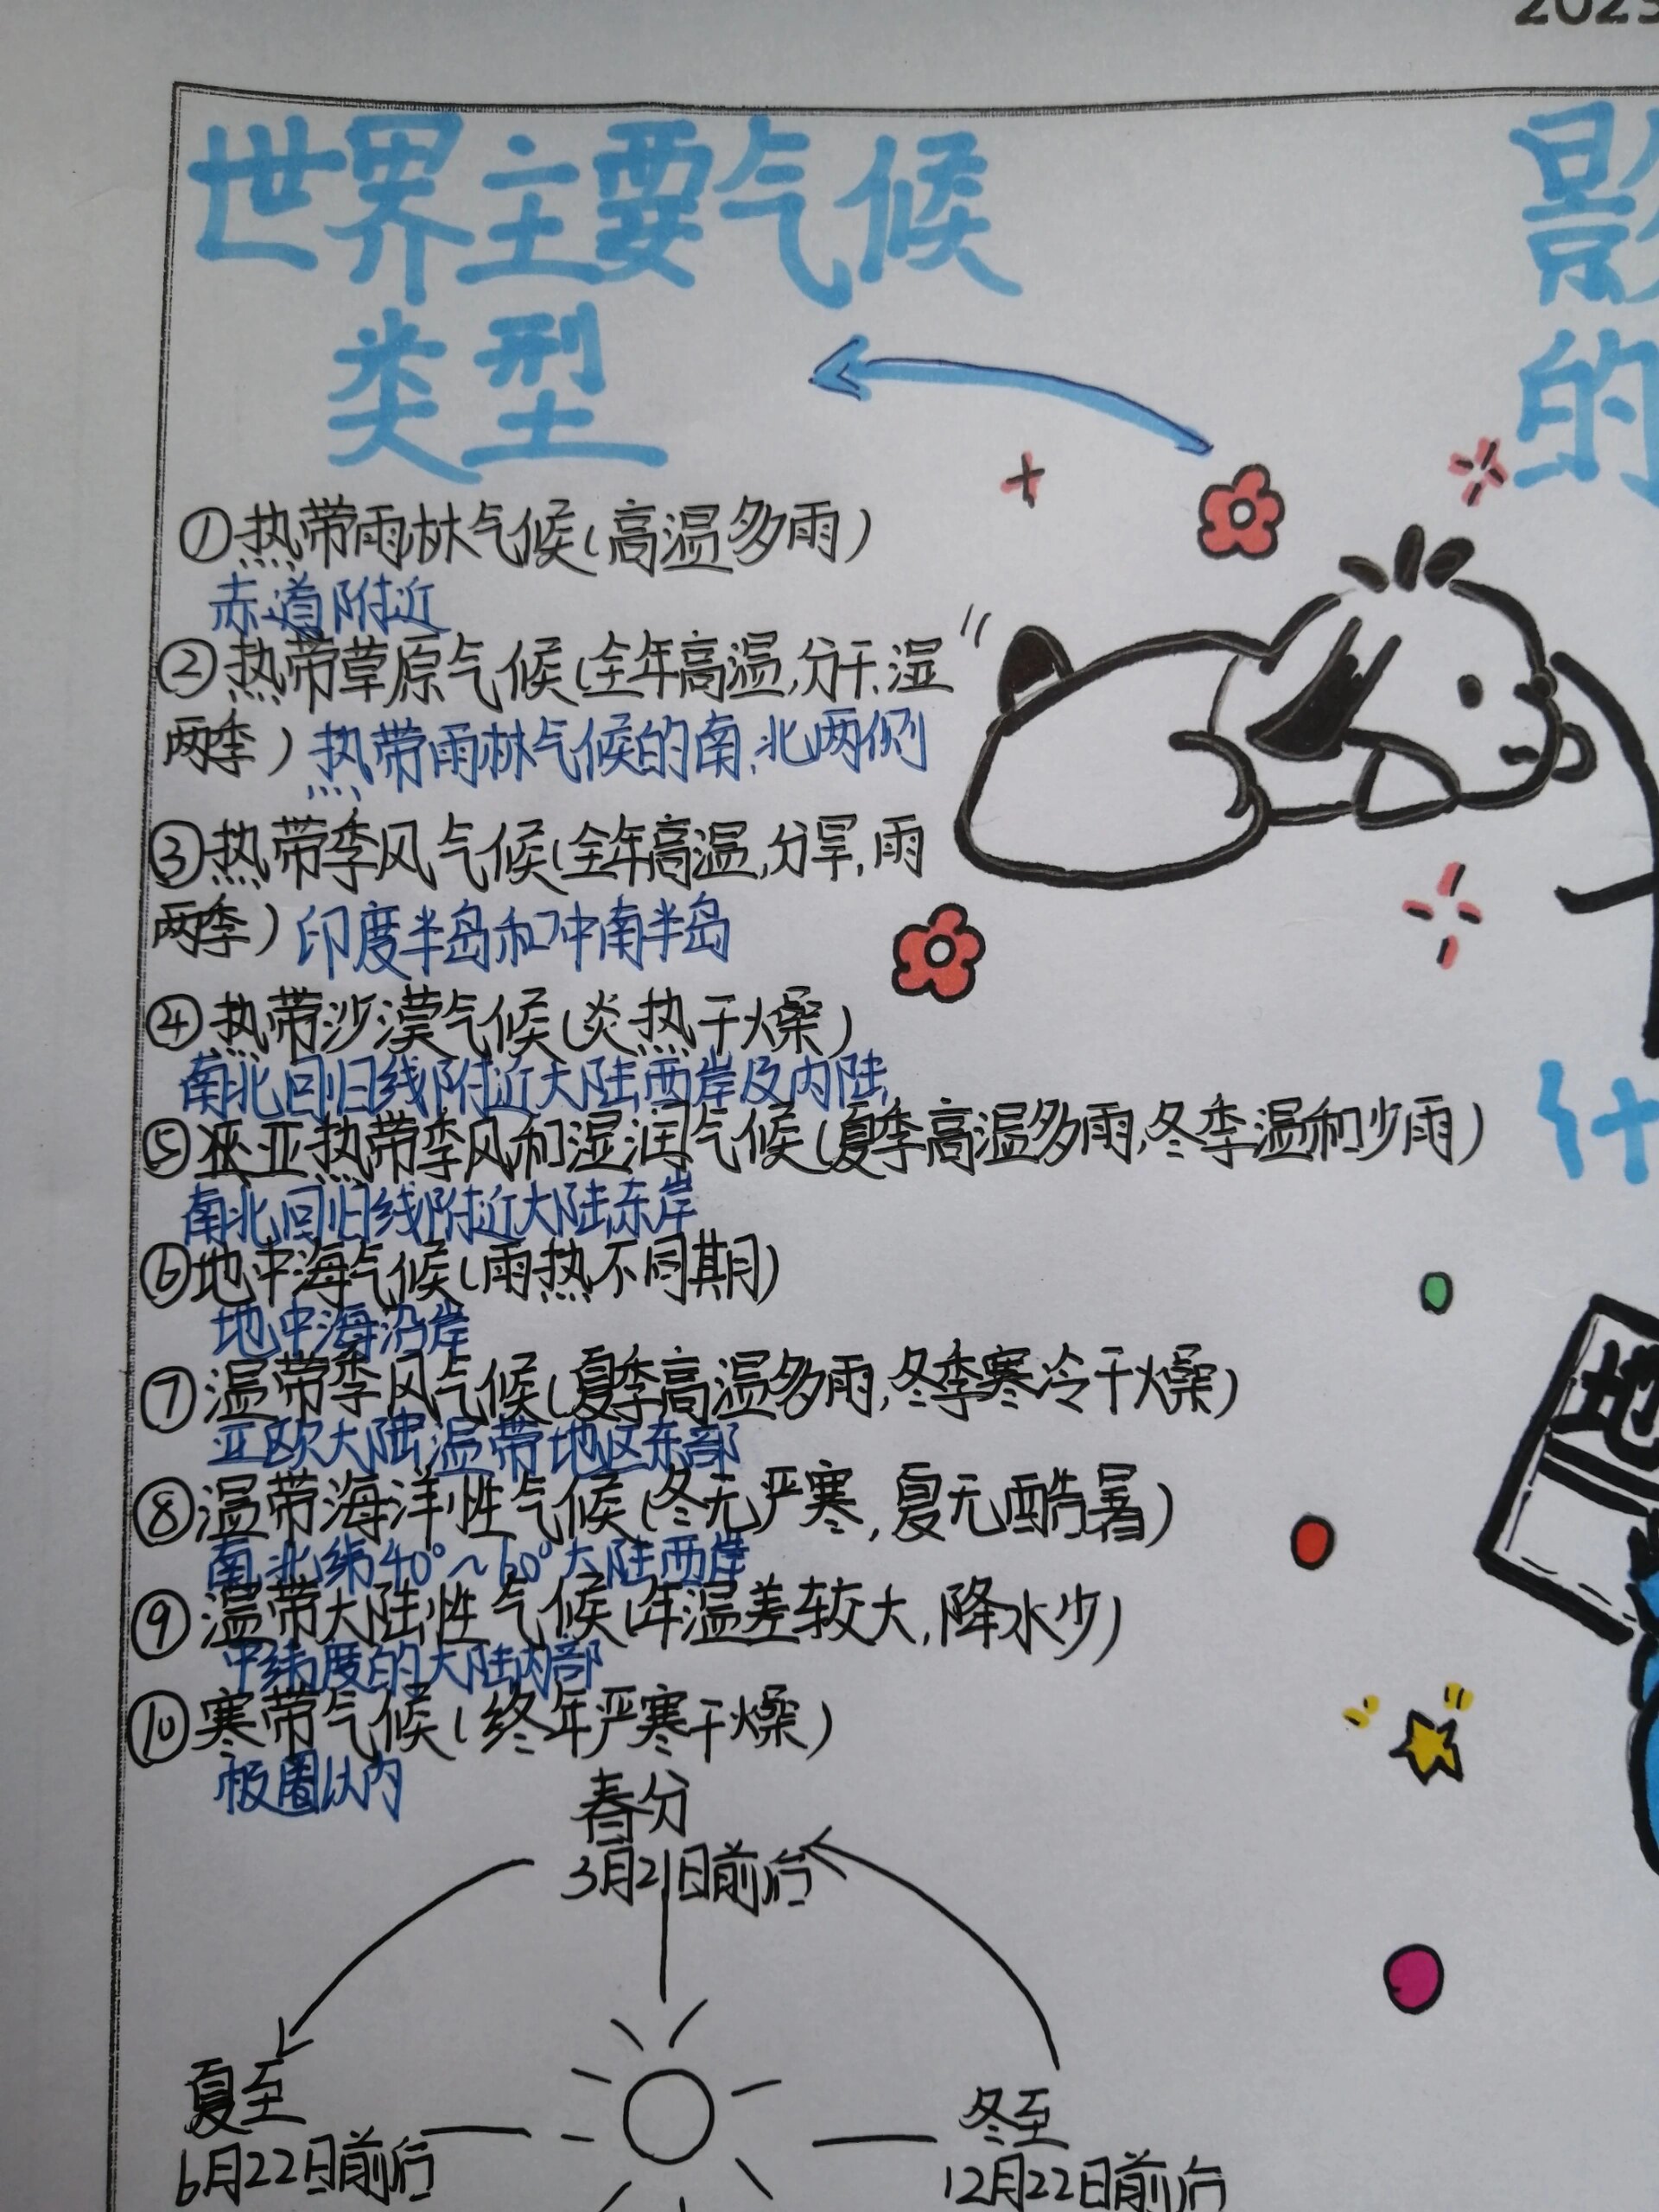 2023
世界主要气候
类型
影
的
①热带雨林气候(高温多雨)
赤道附近
②热带草原气候(全年高温,分干、湿
两季)热带雨林气候的南、北两侧
③热带季风气候(全年高温,分旱,雨
两季)印度半岛和中南半岛
④热带沙漠气候(炎热干燥)
南北回归线附近大陆西岸及内陆
⑤亚热带季风和湿润气候(夏季高温多雨,冬季温和少雨)
南北回归线附近大陆东岸
什
⑥地中海气候(雨热不同期)
地中海沿岸
⑦温带季风气候(夏季高温多雨,冬季寒冷干燥)
亚欧大陆温带地区东部
地
⑧温带海洋性气候(冬无严寒,夏无酷暑)
南北纬40°~60°大陆西岸
⑨温带大陆性气候(年温差较大,降水少)
中纬度的大陆内部
⑩寒带气候(终年严寒干燥)
极圈以内
春分
3月21日前后
夏至
6月22日前后
冬至
12月22日前后